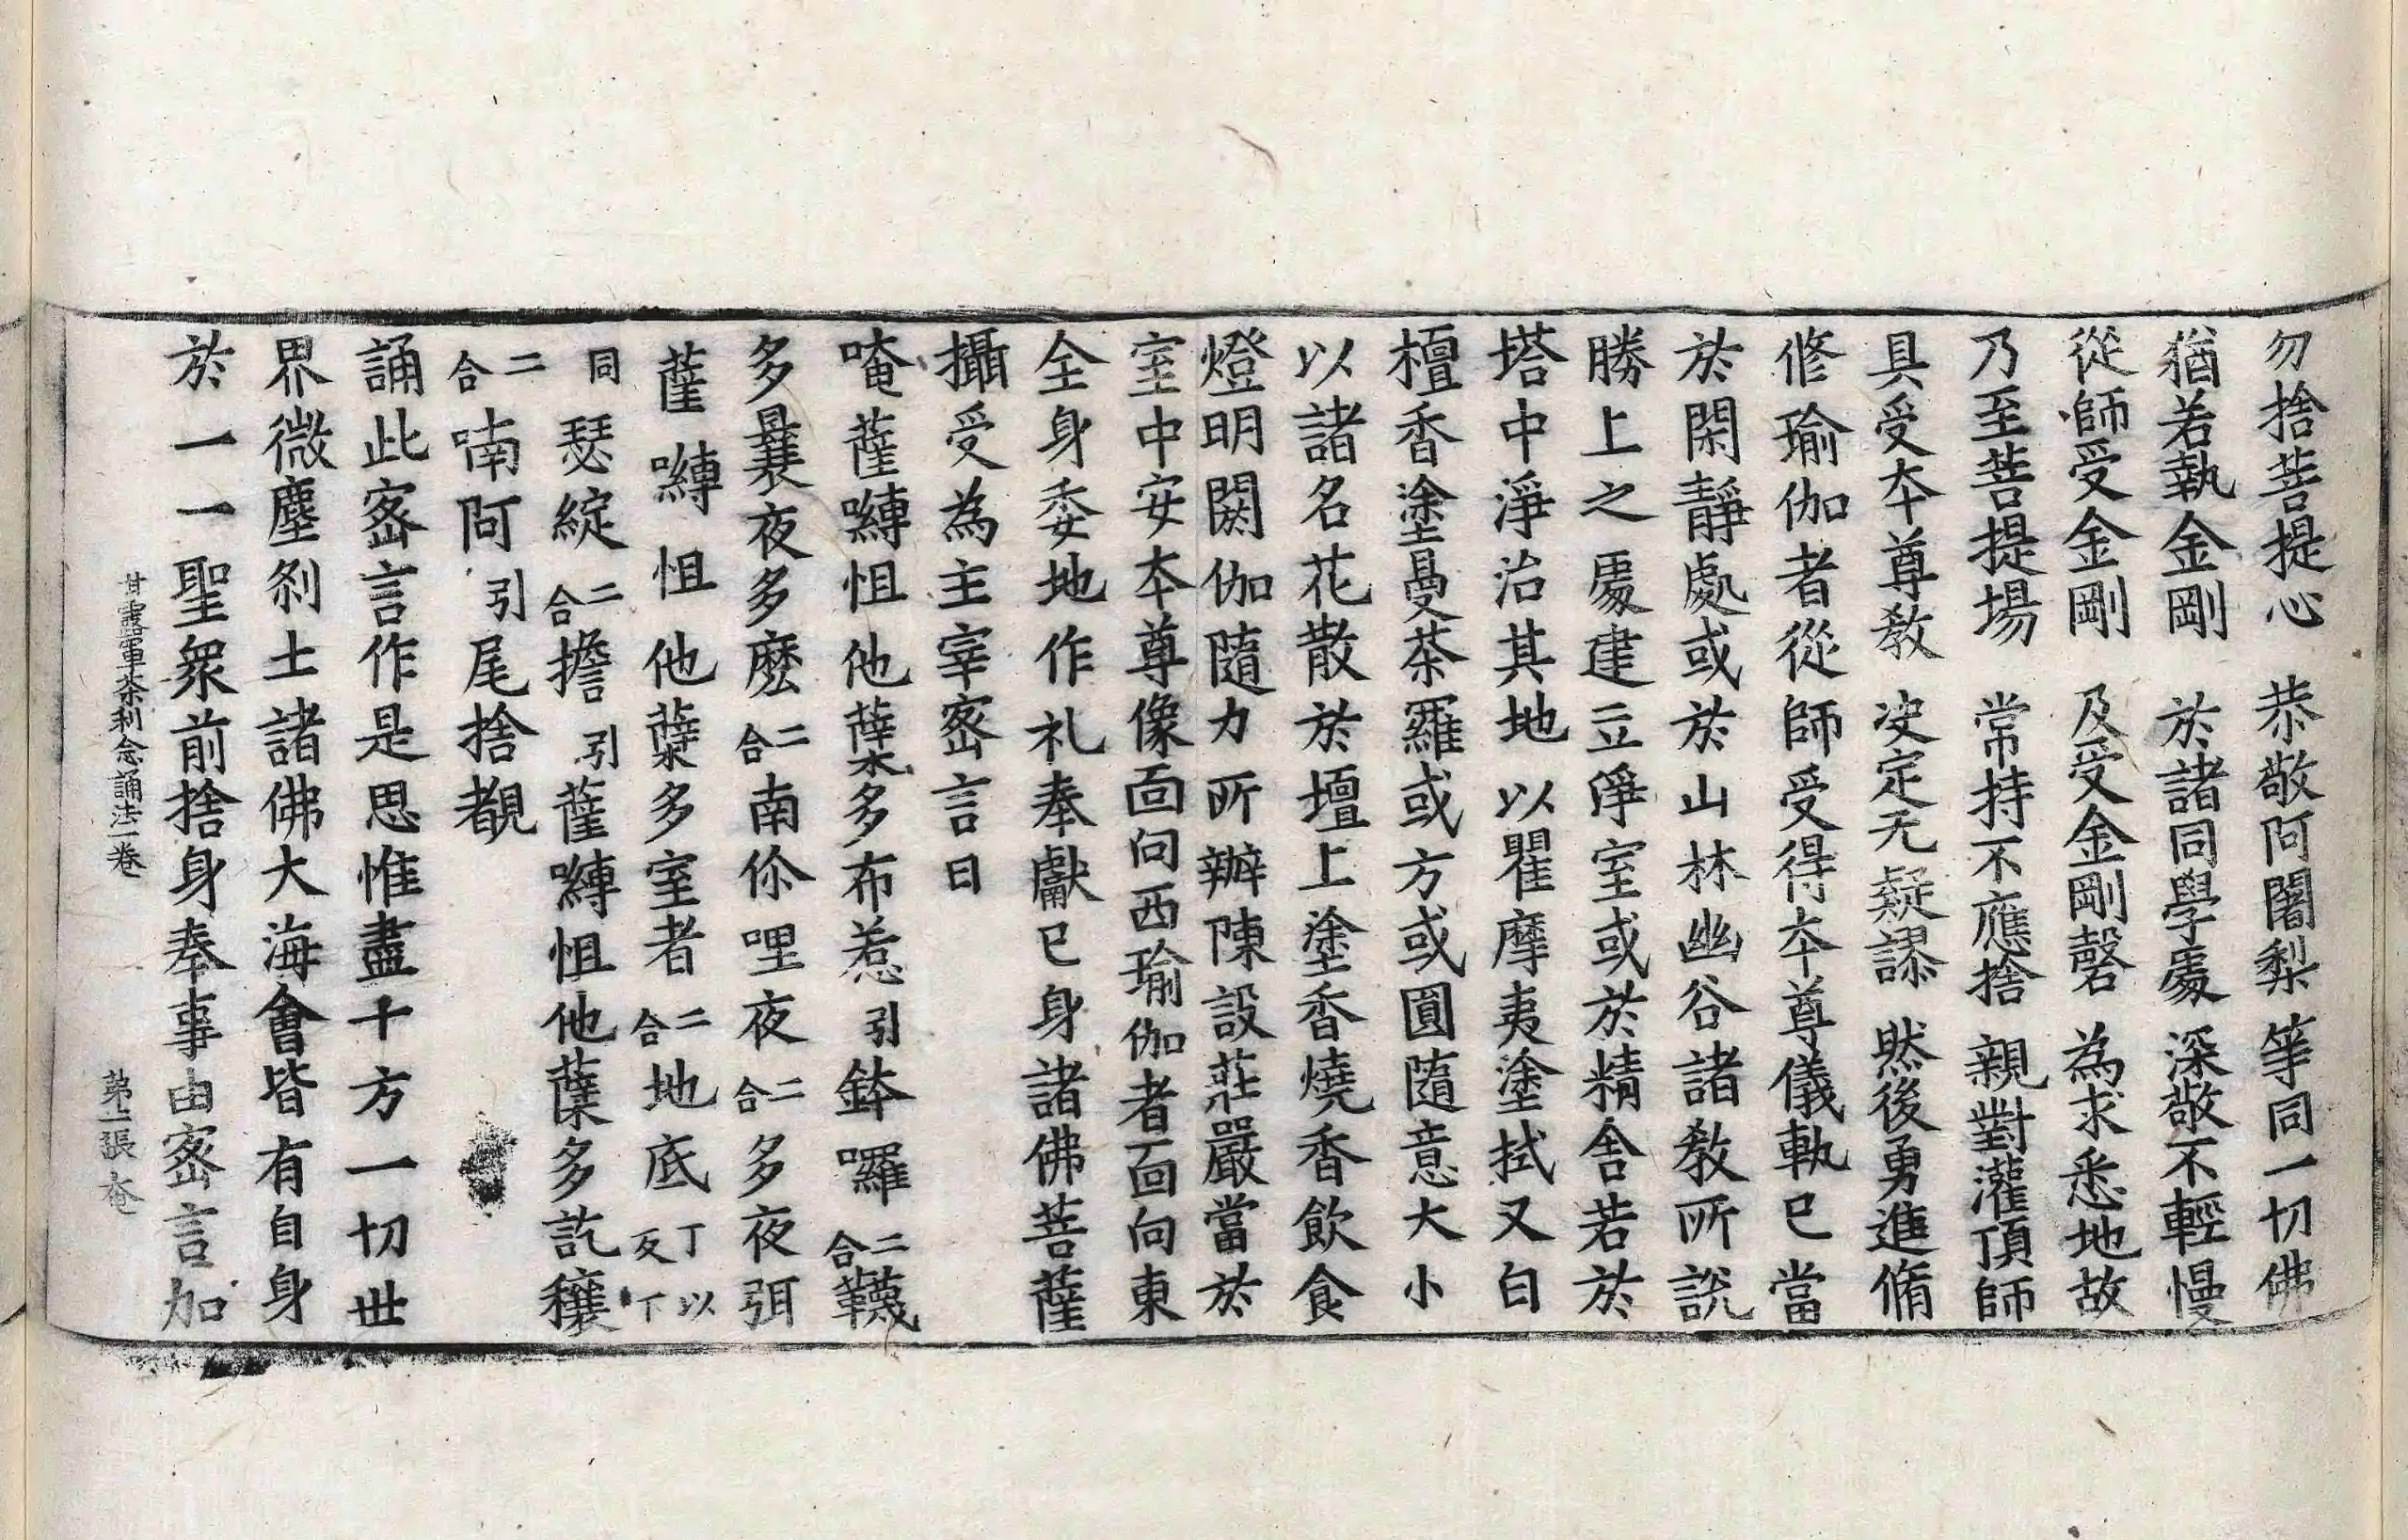 勿捨菩提心　恭敬阿闍梨　等同一切佛
猶若執金剛　於諸同學處　深敬不輕慢
從師受金剛　及受金剛磬　為求悉地故
乃至菩提場　常持不應捨　親對灌頂師
具受夲尊教　决定无疑謬　然後勇進脩
修瑜伽者從師受得夲尊儀軌已當
於閑靜處或於山林幽谷諸教所說
勝上之處建立淨室或於精舍若於
塔中淨治其地以瞿摩夷塗拭又白
檀香塗曼荼羅或方或圓隨意大小
以諸名花散於壇上塗香燒香飲食
燈明閼伽隨力所辦陳設莊嚴當於
室中安夲尊像面向西瑜伽者面向東
全身委地作礼奉獻己身諸佛菩薩
攝受為主宰密言曰
唵薩嚩怛他蘖多布惹引鉢囉二合韈
多曩夜多麽二合南你哩夜二合多夜弭
薩嚩怛他蘖多室者二合地底丁以反下
同瑟綻二合擔引薩嚩怛他蘖多訖穰
二合喃阿引尾捨覩
誦此密言作是思惟盡十方一切世
界微塵剎土諸佛大海會皆有自身
於一一聖衆前捨身奉事由密言加
甘露軍荼利念誦法一卷　第二張